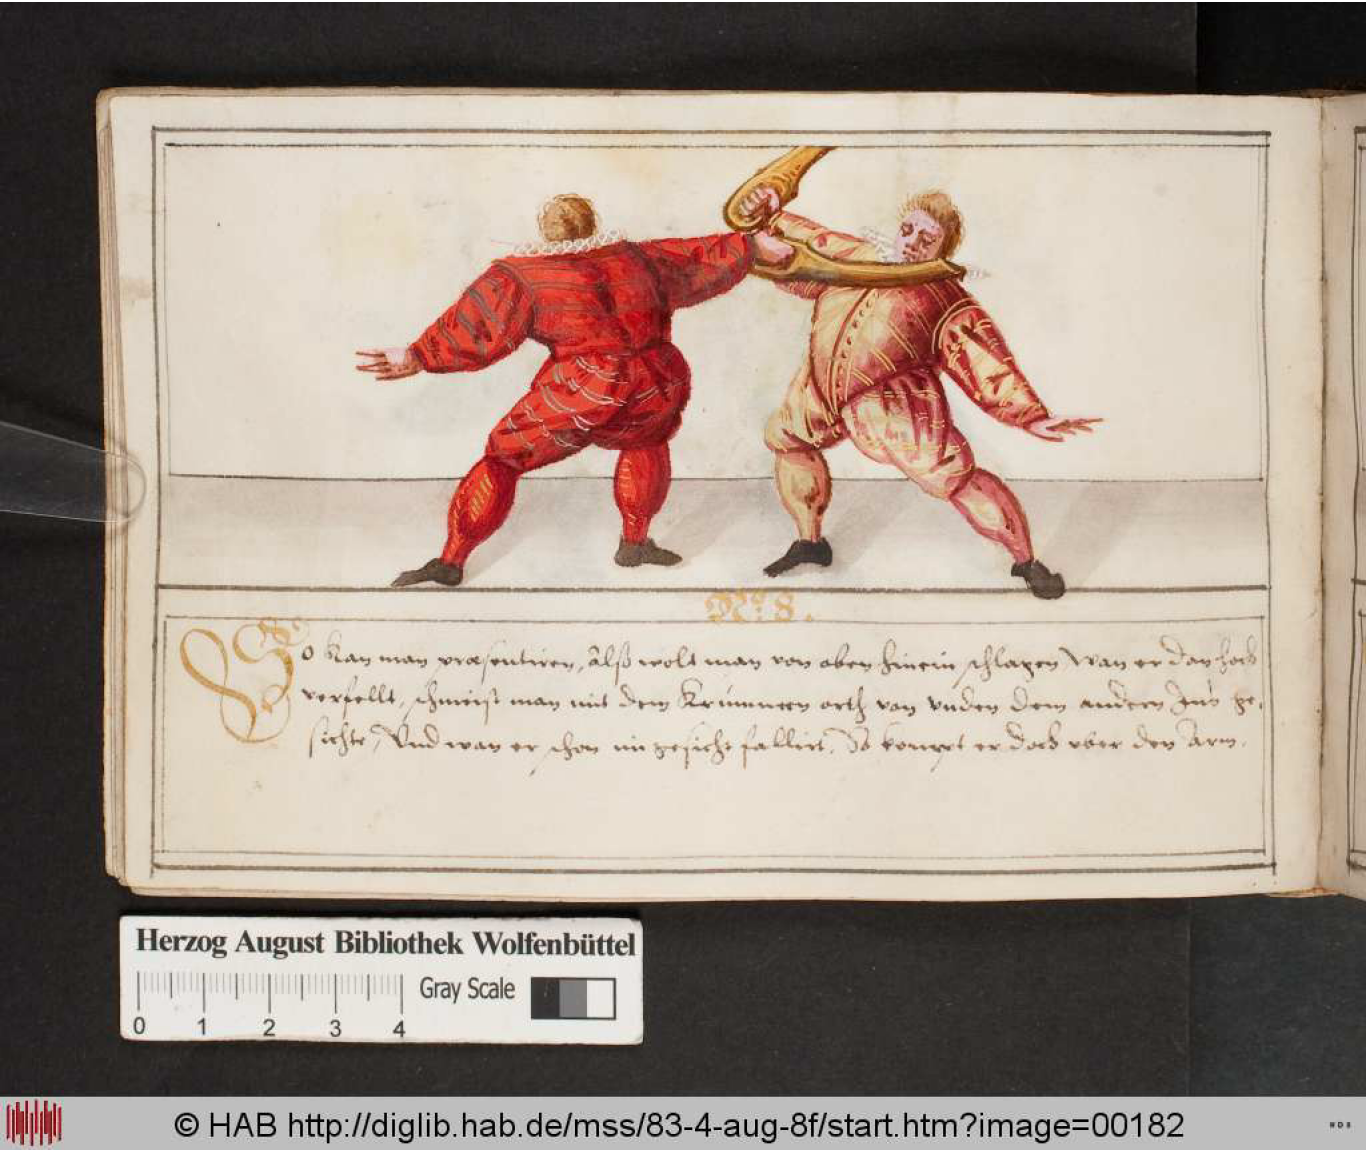 N.o 8.
So kan man præsentiren, Alß wolt man von oben hinein schlagen, Wan er dan hoch
verfellt, schmeist man mit dem Krummen orth von vnden dem andern Ins ge-
sichte, Vnd wan er schon im gesicht fallirt, So kompt er doch vber den Arm.
Herzog August Bibliothek Wolfenbüttel
Gray Scale
0 1 2 3 4
© HAB http://diglib.hab.de/mss/83-4-aug-8f/start.htm?image=00182